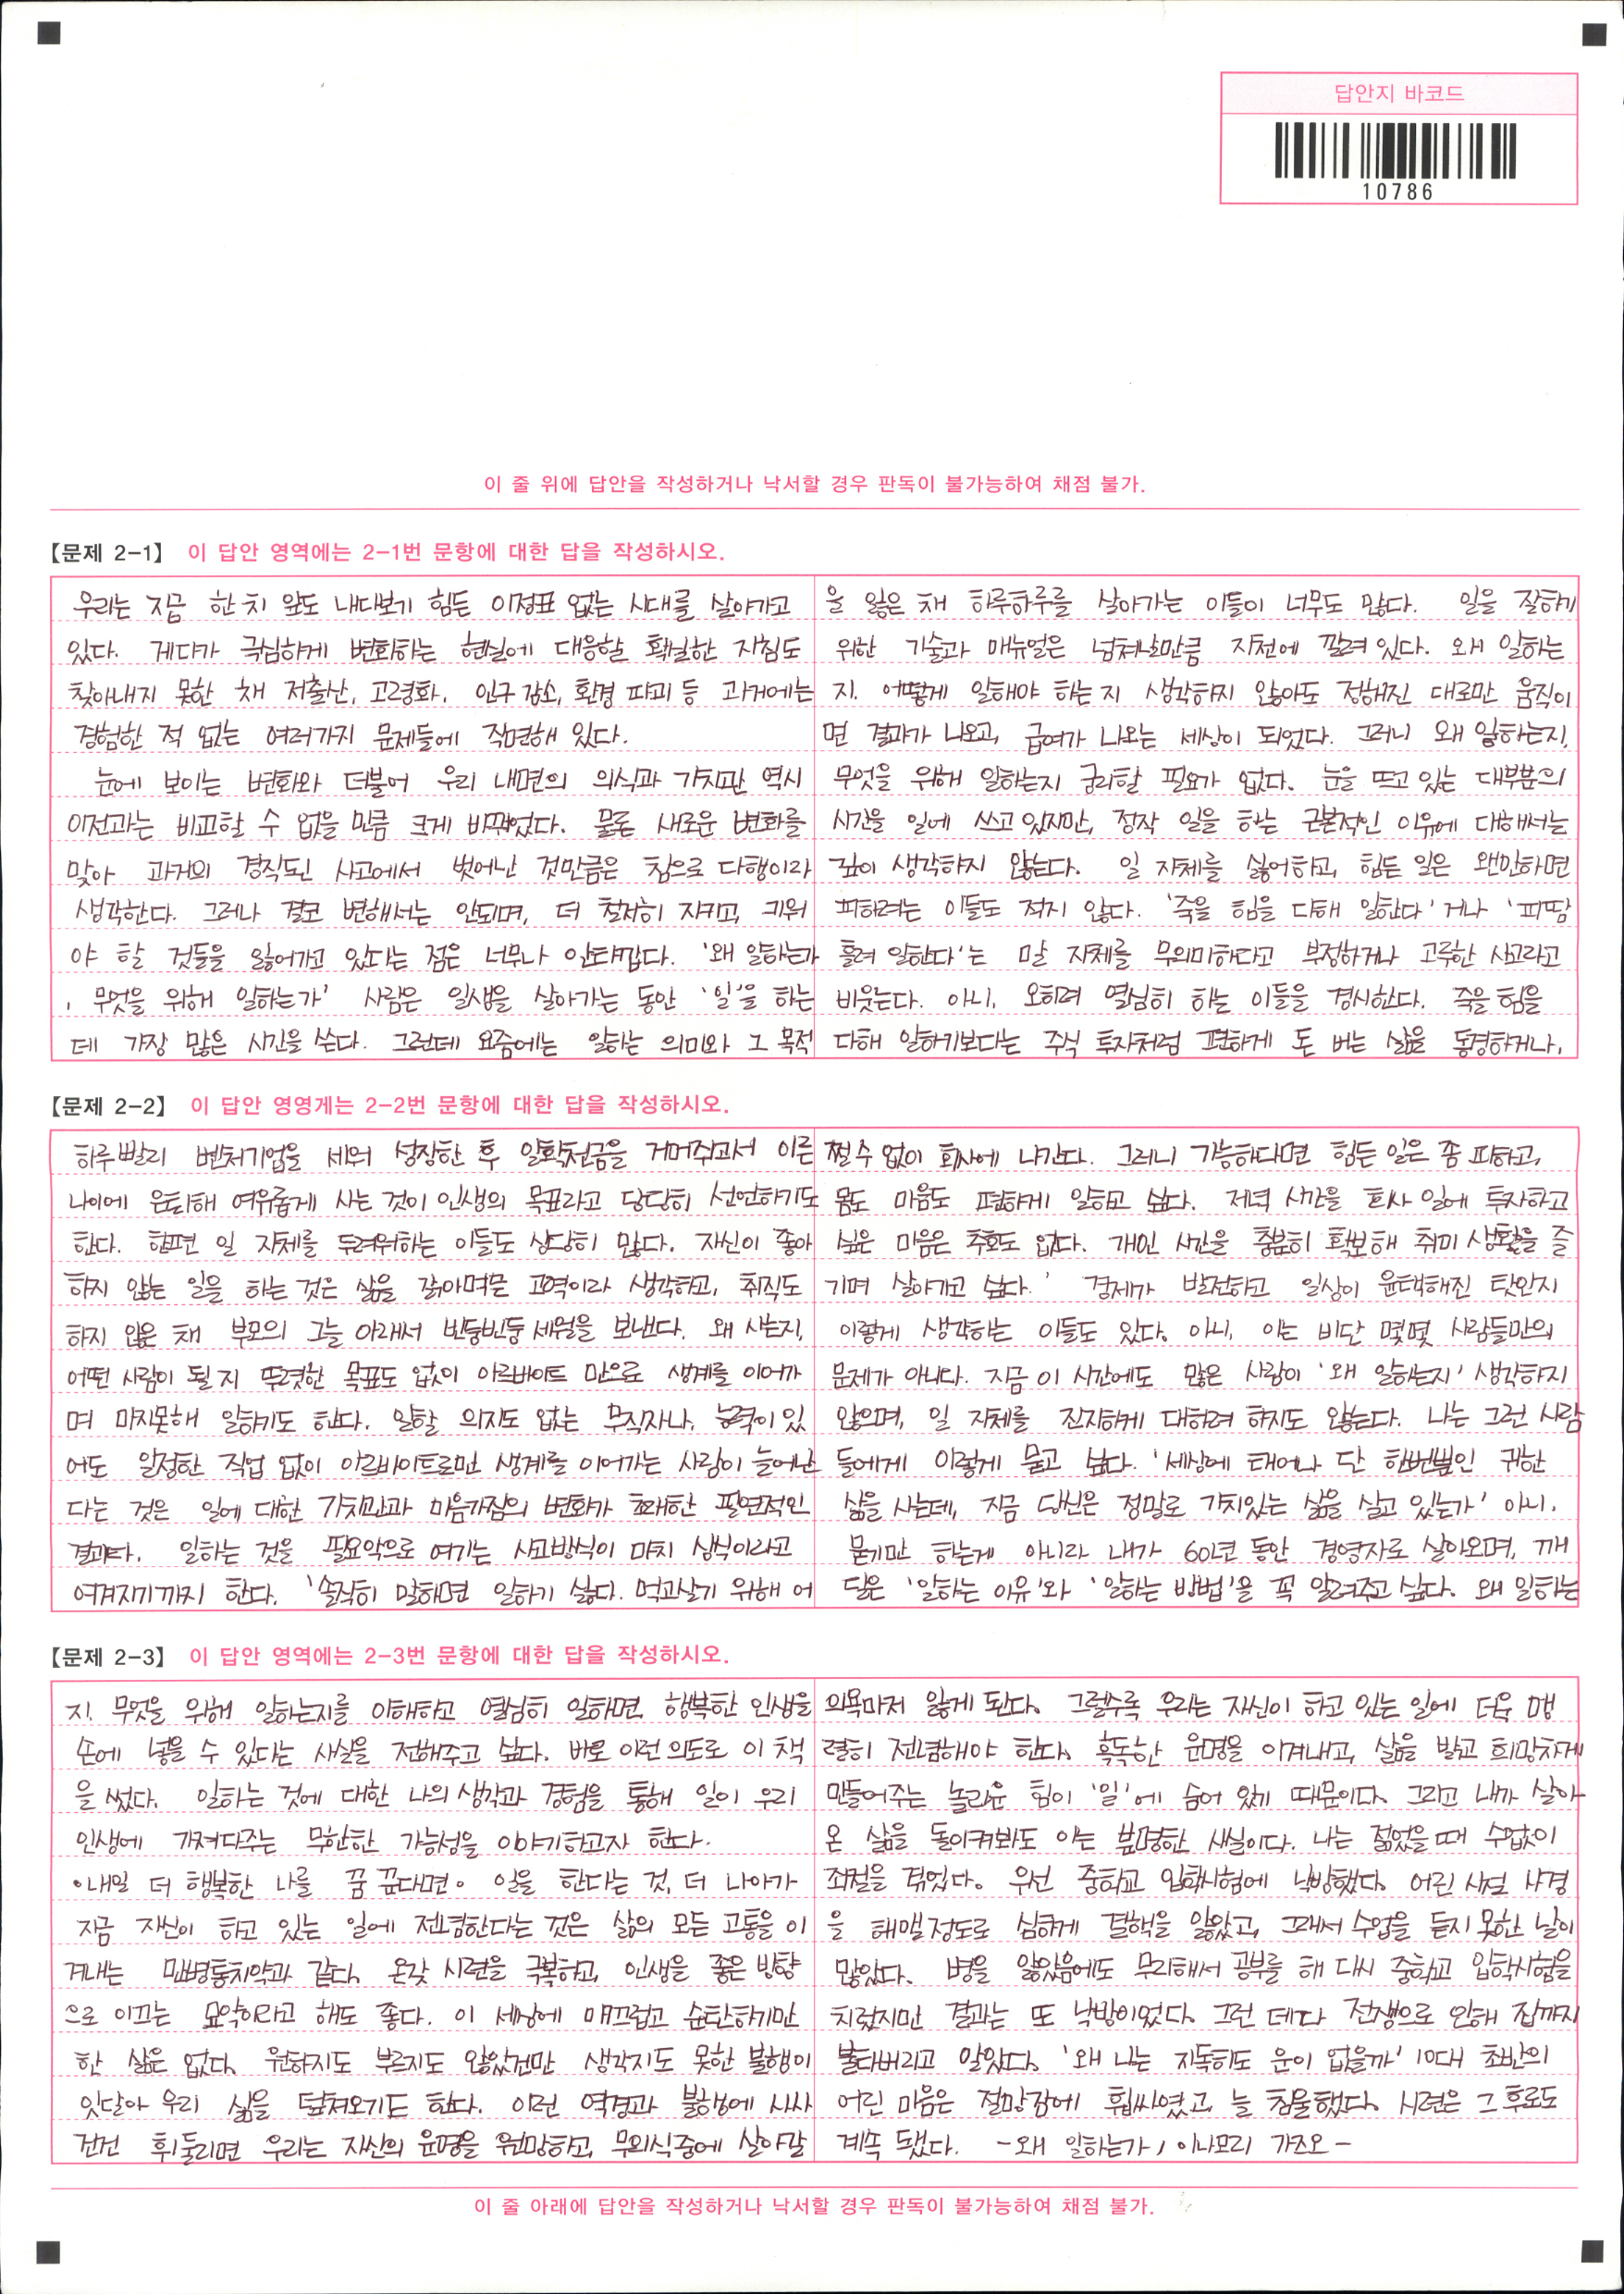 답안지 바코드
10786
이 줄 위에 답안을 작성하거나 낙서할 경우 판독이 불가능하여 채점 불가.
【문제 2-1】 이 답안 영역에는 2-1번 문항에 대한 답을 작성하시오.
우리는 지금 한치 앞도 내다보기 힘든 이정표 없는 시대를 살아가고
있다. 게다가 극심하게 변화하는 현실에 대응할 확실한 지침도
찾아내지 못한 채 저출산, 고령화, 인구 감소, 환경 파괴 등 과거에는
경험한 적 없는 여러가지 문제들에 직면해 있다.
눈에 보이는 변화와 더불어 우리 내면의 의식과 가치관 역시
이전과는 비교할 수 없을 만큼 크게 바뀌었다. 물론 새로운 변화를
맞아 과거의 경직된 사고에서 벗어난 것만큼은 참으로 다행이라
생각한다. 그러나 결코 변해서는 안되며, 더 철저히 지키고, 키워
야 할 것들을 잃어가고 있다는 점은 너무나 안타깝다. '왜 일하는가
, 무엇을 위해 일하는가' 사람은 일생을 살아가는 동안 '일'을 하는
데 가장 많은 시간을 쓴다. 그런데 요즘에는 일하는 의미와 그 목적
을 잃은 채 하루하루를 살아가는 이들이 너무도 많다. 일을 잘하기
위한 기술과 매뉴얼은 넘쳐날만큼 지천에 깔려 있다. 왜 일하는
지, 어떻게 일해야 하는 지 생각하지 않아도 정해진 대로만 움직이
면 결과가 나오고, 급여가 나오는 세상이 되었다. 그러니 왜 일하는지,
무엇을 위해 일하는지 궁리할 필요가 없다. 눈을 뜨고 있는 대부분의
시간을 일에 쓰고 있지만, 정작 일을 하는 근본적인 이유에 대해서는
깊이 생각하지 않는다. 일 자체를 싫어하고, 힘든 일은 왠만하면
피하려는 이들도 적지 않다. '죽을 힘을 다해 일한다' 거나 '피땀
흘려 일한다'는 말 자체를 무의미하다고 부정하거나 고루한 사고라고
비웃는다. 아니, 오히려 열심히 하는 이들을 경시한다. 죽을 힘을
다해 일하기보다는 주식 투자처럼 편하게 돈 버는 삶을 동경하거나,
【문제 2-2】 이 답안 영영게는 2-2번 문항에 대한 답을 작성하시오.
하루 빨리 벤처기업을 세워 성장한 후 일확천금을 거머쥐고서 이른
나이에 은퇴해 여유롭게 사는 것이 인생의 목표라고 당당히 선언하기도
한다. 한편 일 자체를 두려워하는 이들도 상당히 많다. 자신이 좋아
하지 않는 일을 하는 것은 삶을 갉아먹는 고역이라 생각하고, 취직도
하지 않은 채 부모의 그늘 아래서 빈둥빈둥 세월을 보낸다. 왜 사는지,
어떤 사람이 될 지 뚜렷한 목표도 없이 아르바이트 만으로 생계를 이어가
며 마지못해 일하기도 한다. 일할 의지도 없는 무직자나, 능력이 있
어도 일정한 직업 없이 아르바이트로만 생계를 이어가는 사람이 늘어난
다는 것은 일에 대한 가치관과 마음가짐의 변화가 초래한 필연적인
결과다. 일하는 것을 필요악으로 여기는 사고방식이 마치 상식이라고
여겨지기까지 한다. '솔직히 말하면 일하기 싫다. 먹고살기 위해 어
쩔 수 없이 회사에 나간다. 그러니 가능하다면 힘든 일은 좀 피하고,
몸도 마음도 편하게 일하고 싶다. 저녁 시간을 회사 일에 투자하고
싶은 마음은 추호도 없다. 개인 시간을 충분히 확보해 취미 생활을 즐
기며 살아가고 싶다.' 경제가 발전하고 일상이 윤택해진 탓인지
이렇게 생각하는 이들도 있다. 아니, 이는 비단 몇몇 사람들만의
문제가 아니다. 지금 이 시간에도 많은 사람이 '왜 일하는지' 생각하지
않으며, 일 자체를 진지하게 대하려 하지도 않는다. 나는 그런 사람
들에게 이렇게 묻고 싶다. '세상에 태어나 단 한번뿐인 귀한
삶을 사는데, 지금 당신은 정말로 가치있는 삶을 살고 있는가' 아니,
묻기만 하는게 아니라 내가 60년 동안 경영자로 살아오며, 깨
달은 '일하는 이유'와 '일하는 방법'을 꼭 알려주고 싶다. 왜 일하는
【문제 2-3】 이 답안 영역에는 2-3번 문항에 대한 답을 작성하시오.
지, 무엇을 위해 일하는지를 이해하고 열심히 일하면, 행복한 인생을
손에 넣을 수 있다는 사실을 전해주고 싶다. 바로 이런 의도로 이 책
을 썼다. 일하는 것에 대한 나의 생각과 경험을 통해 일이 우리
인생에 가져다주는 무한한 가능성을 이야기하고자 한다.
•내일 더 행복한 나를 꿈 꾼다면• 일을 한다는 것, 더 나아가
지금 자신이 하고 있는 일에 전념한다는 것은 삶의 모든 고통을 이
겨내는 만병통치약과 같다. 온갖 시련을 극복하고, 인생을 좋은 방향
으로 이끄는 묘약이라고 해도 좋다. 이 세상에 매끄럽고 순탄하기만
한 삶은 없다. 원하지도 부르지도 않았건만 생각지도 못한 불행이
잇달아 우리 삶을 덮쳐오기도 한다. 이런 역경과 불행에 사사
건건 휘둘리면 우리는 자신의 운명을 원망하고, 무의식중에 살아갈
의욕마저 잃게 된다. 그럴수록 우리는 자신이 하고 있는 일에 더욱 맹
렬히 전념해야 한다. 혹독한 운명을 이겨내고, 삶을 밝고 희망차게
만들어주는 놀라운 힘이 '일'에 숨어 있기 때문이다. 그리고 내가 살아
온 삶을 돌이켜봐도 이는 분명한 사실이다. 나는 젊었을 때 수없이
좌절을 겪었다. 우선 중학교 입학시험에 낙방했다. 어린 시절 사경
을 헤맬 정도로 심하게 결핵을 앓았고, 그래서 수업을 듣지 못한 날이
많았다. 병을 앓았음에도 무리해서 공부를 해 다시 중학교 입학시험을
치렀지만 결과는 또 낙방이었다. 그런 데다 전쟁으로 인해 집까지
불타버리고 말았다. '왜 나는 지독히도 운이 없을까' 10대 초반의
어린 마음은 절망감에 휩싸였고, 늘 침울했다. 시련은 그 후로도
계속 됐다. -왜 일하는가, 이나모리 가즈오-
이 줄 아래에 답안을 작성하거나 낙서할 경우 판독이 불가능하여 채점 불가.